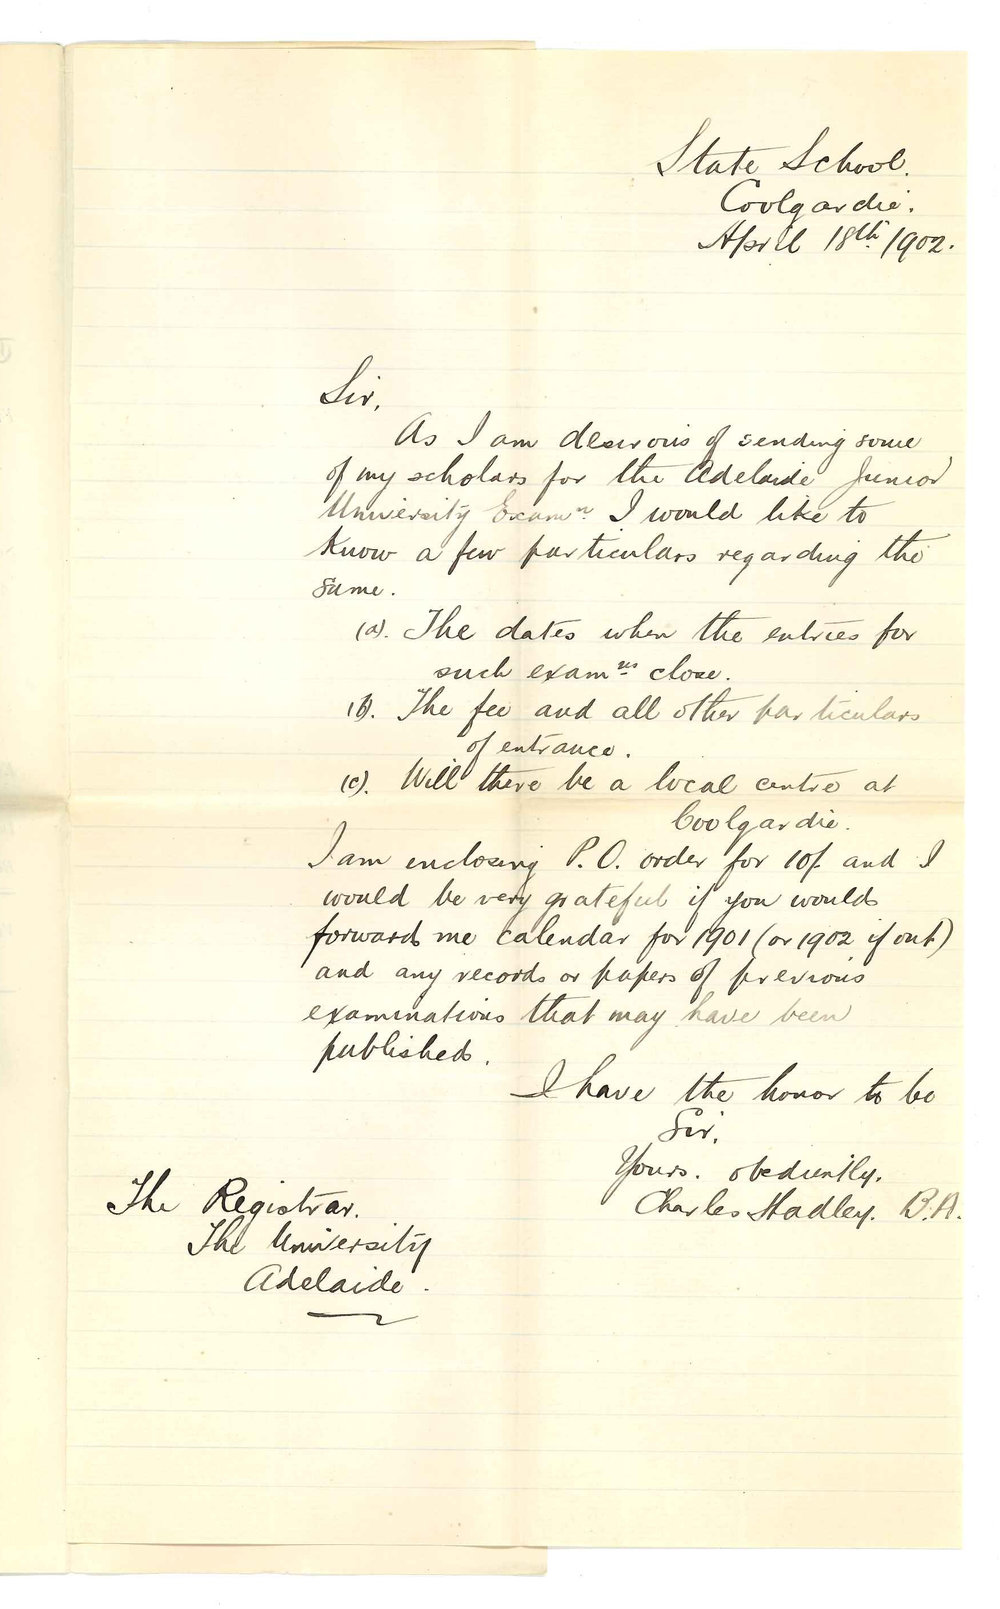 State School.
Coolgardie.
April 18th 1902.
Sir,
As I am desirous of sending some
of my scholars for the Adelaide Junior
University Examn. I would like to
know a few particulars regarding the
same.
(a). The dates when the entries for
such examns close.
(b). The fee and all other particulars
of entrance.
(c). Will there be a local centre at
Coolgardie.
I am enclosing P.O. order for 10/- and I
would be very grateful if you would
forward me calendar for 1901 (or 1902 if out)
and any records or papers of previous
examinations that may have been
published.
I have the honor to be
Sir,
Yours. obediently.
Charles Hadley. B.A.
The Registrar.
The University
Adelaide.